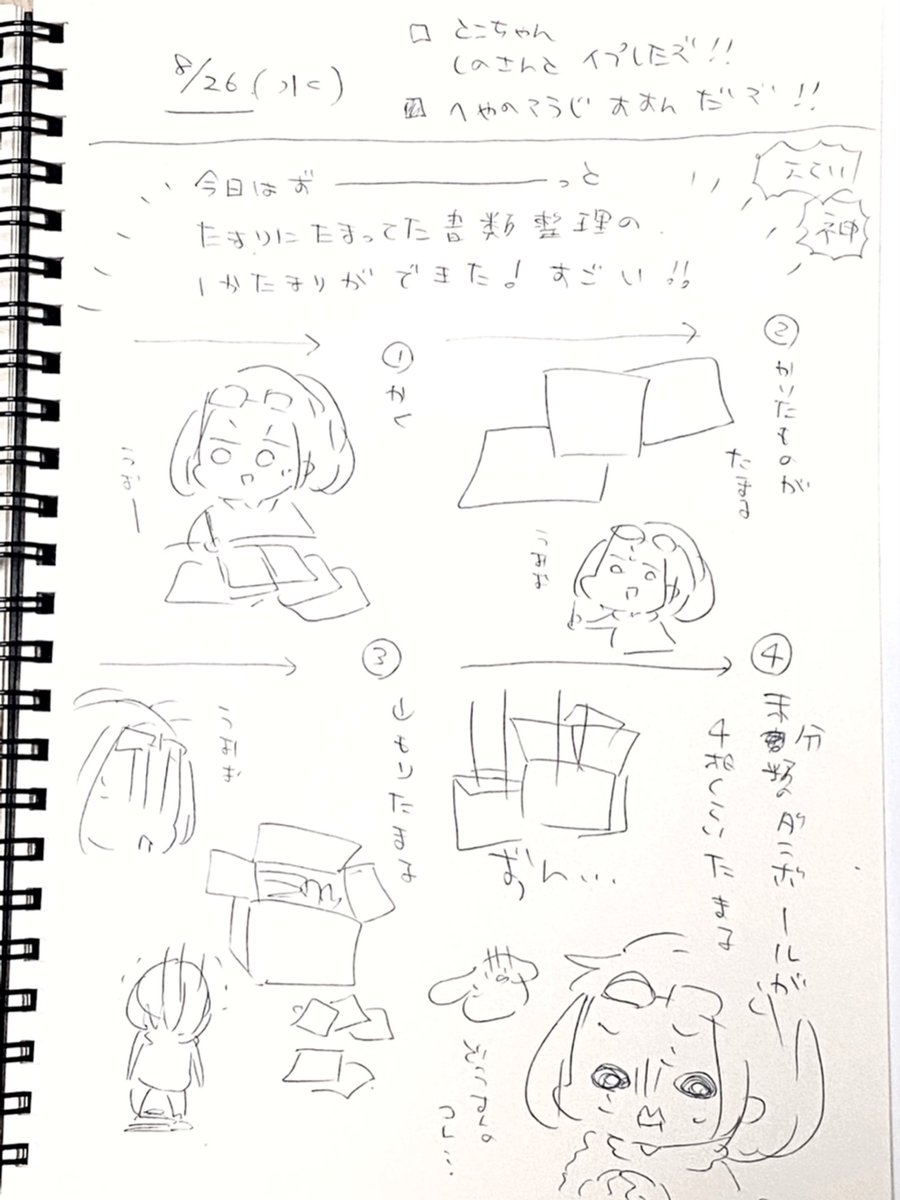 8/26(水)
□ とこちゃん
しのさんと イプしたズ!!
へやのそうじ すすんだズ!!
えらい
神
今日はず――――っと
たまりにたまってた書類整理の
1かたまりができた! すごい!!
① かく
うおー
② かいたものが
たまる
うおお
③ 山もりたまる
うおお
④ 未分類のダンボールが
4箱くらいたまる
ずん…
コレ…